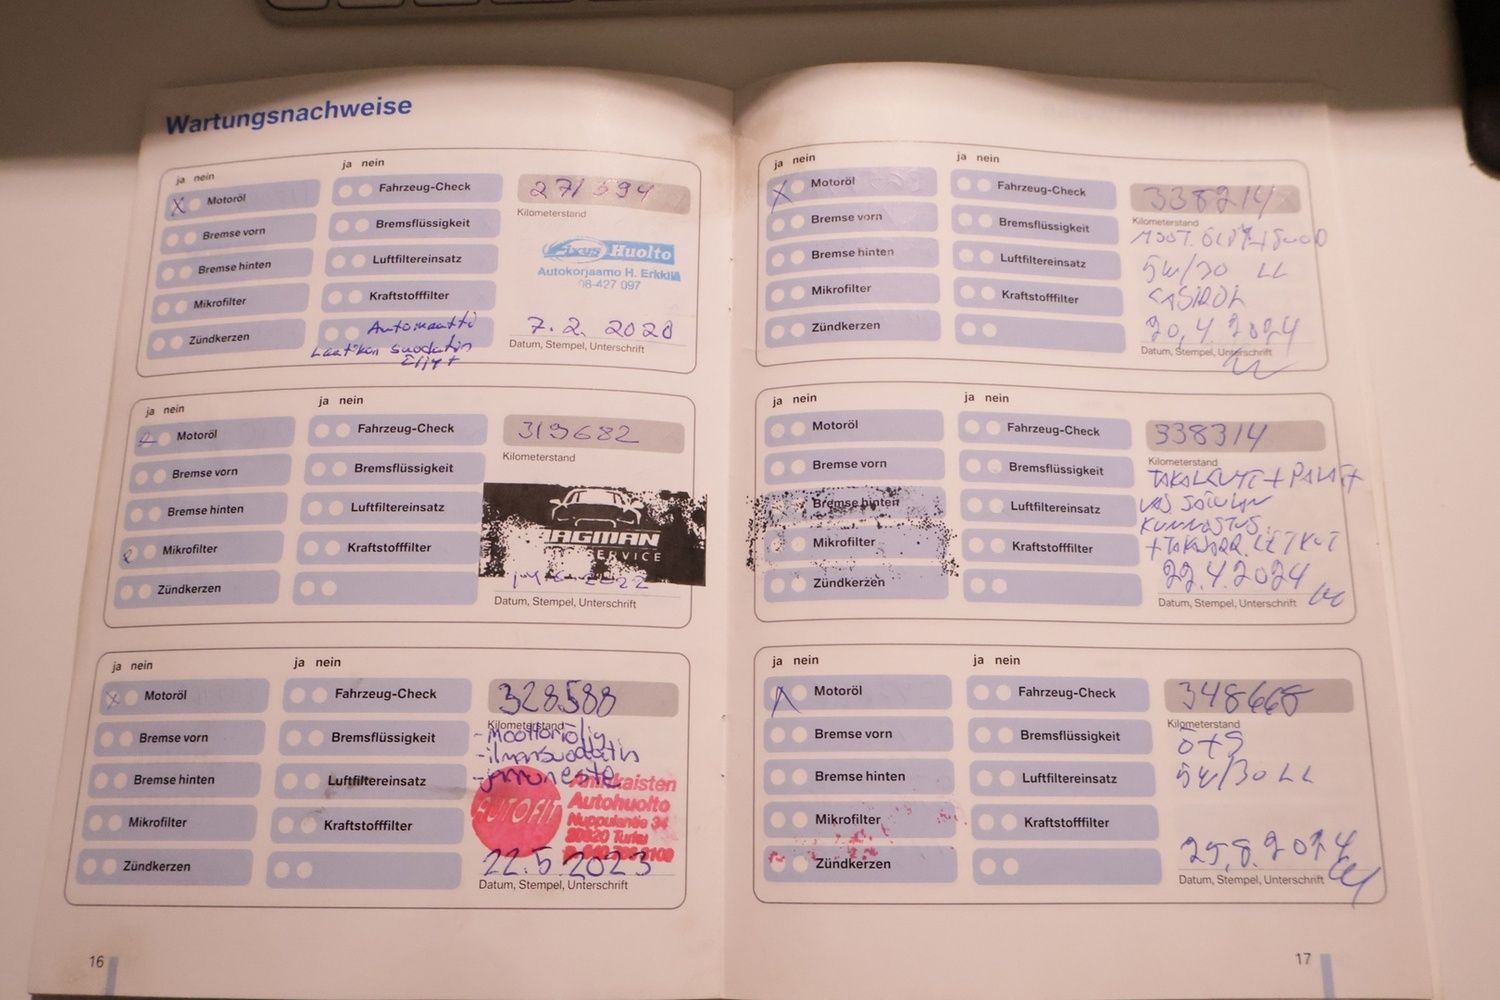 Wartungsnachweise
ja nein
ja nein
Motoröl
Fahrzeug-Check
271594
Kilometerstand
Bremse vorn
Bremsflüssigkeit
Huolto
Autokorjaamo H. Erkkilä
08-427 097
Bremse hinten
Luftfiltereinsatz
Mikrofilter
Kraftstofffilter
Zündkerzen
Automaatti
Laatikon suodatin
Öljyt
7.2. 2020
Datum, Stempel, Unterschrift
ja nein
ja nein
Motoröl
Fahrzeug-Check
319682
Kilometerstand
Bremse vorn
Bremsflüssigkeit
Bremse hinten
Luftfiltereinsatz
AGMAN
SERVICE
Mikrofilter
Kraftstofffilter
Zündkerzen
2022
Datum, Stempel, Unterschrift
ja nein
ja nein
Motoröl
Fahrzeug-Check
328588
Kilometerstand
Bremse vorn
Bremsflüssigkeit
- Moottoriöljy
- ilmansuodatin
- jarruneste
Bremse hinten
Luftfiltereinsatz
AUTOFIT
kaisten
Autohuolto
Nuppulantie 34
20320 Turku
Mikrofilter
Kraftstofffilter
Zündkerzen
22.5.2023
Datum, Stempel, Unterschrift
16
ja nein
ja nein
Motoröl
Fahrzeug-Check
338214
Kilometerstand
Bremse vorn
Bremsflüssigkeit
Bremse hinten
Luftfiltereinsatz
5W/30 LL
CASTROL
Mikrofilter
Kraftstofffilter
Zündkerzen
20.4.2024
Datum, Stempel, Unterschrift
ja nein
ja nein
Motoröl
Fahrzeug-Check
338314
Kilometerstand
Bremse vorn
Bremsflüssigkeit
Bremse hinten
Luftfiltereinsatz
Mikrofilter
Kraftstofffilter
LETKUT
Zündkerzen
22.4.2024
Datum, Stempel, Unterschrift
ja nein
ja nein
Motoröl
Fahrzeug-Check
348668
Kilometerstand
Bremse vorn
Bremsflüssigkeit
Ö+S
5W/30 LL
Bremse hinten
Luftfiltereinsatz
Mikrofilter
Kraftstofffilter
Zündkerzen
25.8.2024
Datum, Stempel, Unterschrift
17